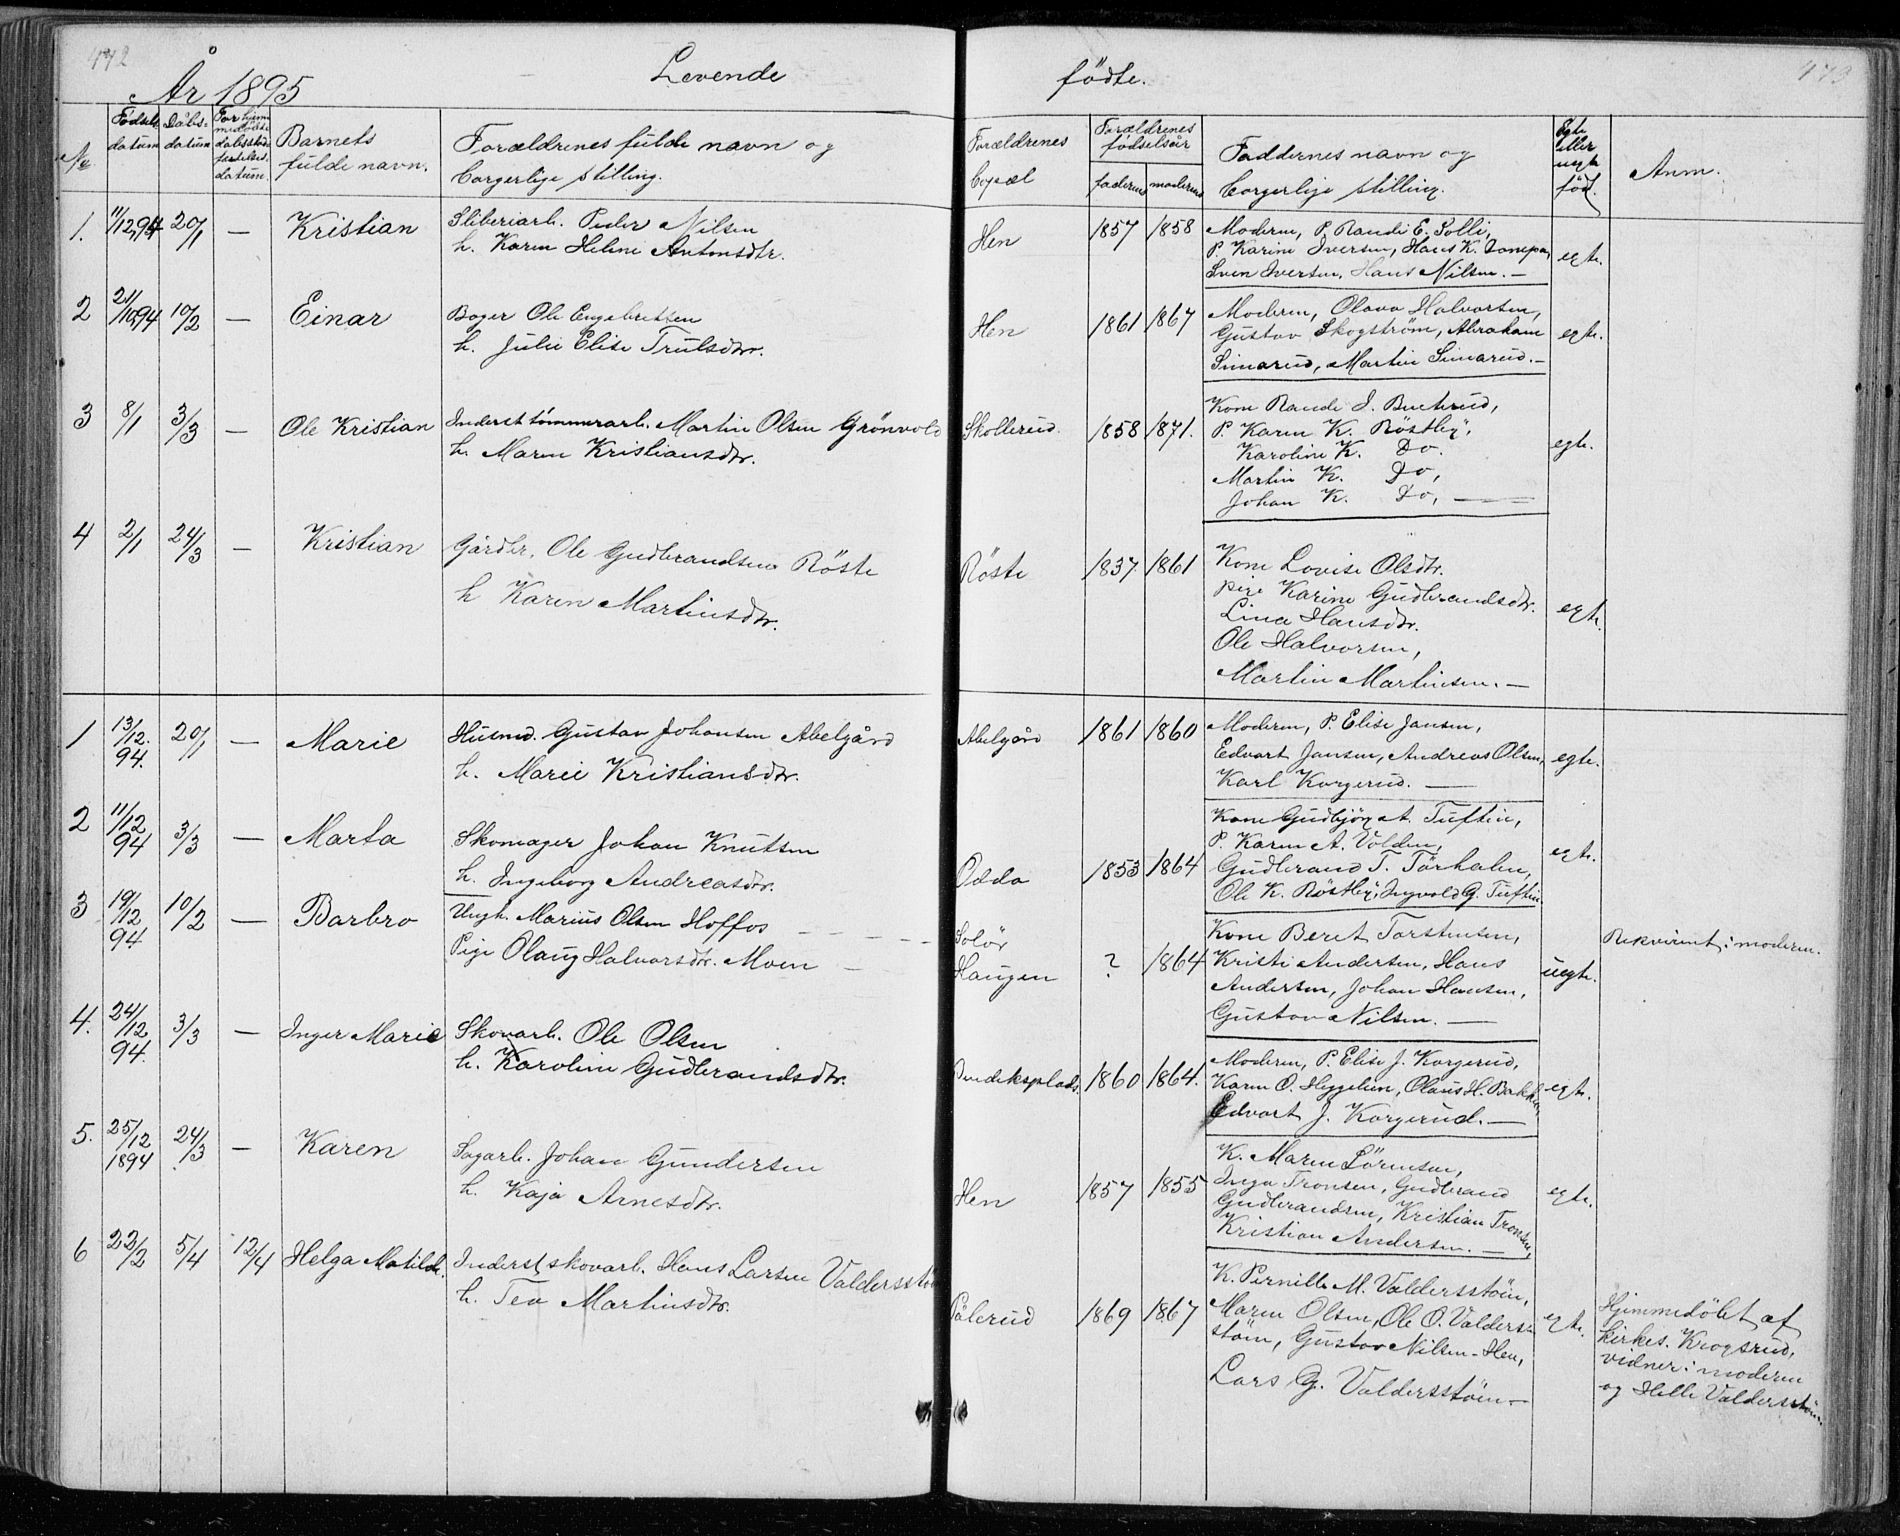 472
År 1895
Levende
№
Fødsels-
datum
Dåbs-
datum
Barnets
fulde navn.
Forældrenes fulde navn og
borgerlige stilling.
1. 11/12,94 20/1 — Kristian Sliberiarb. Peder Nilsen
h. Karen Helene Antonsdtr.
2 21/10,94 10/2 — Einar Bager Ole Engebretsen
h. Julie Elise Trulsdtr.
3 8/1 3/3 — Ole Kristian Inderst tømmerarb. Martin Olsen Grönvold
h. Maren Kristiansdtr.
4 2/1 24/3 — Kristian Gårdbr. Ole Gudbrandsen Röste
h Karen Martinsdtr.
1 13/12. 94. 20/1 — Marie Husmd. Gustav Johansen Abelgård
h. Marie Kristiansdtr.
2 11/12 94 3/3 — Marta Skomager Johan Knutsen
h. Ingeborg Andreasdtr.
3 19/12 94 10/2 — Barbro Ungk. Marius Olsen Hoffos
Pige Olaug Halvorsdtr. Moen —
4. 24/12 94. 3/3 — Inger Marie Skovarb. Ole Olsen
h. Karoline Gudbrandsdtr.
5. 25/12 1894 24/3 — Karen Sagarb. Johan Gundersen
h. Kaja Arnesdtr.
6 22/2 5/4 12/4 Helga Matilde. Inderst, skovarb. Hans Larsen Valdersstøen
h. Tea Martinsdtr.
473
fødte.
Forældrenes
bopæl
Forældrenes
fødselsår
faderens moderens
Faddernes navn og
borgerlige stilling.
Egte
eller
uegte
fød.
Anm.
Hen 1857 1858 Moderen, P. Randi E. Solli,
P. Karine Iversen, Hans K.
Sven Iversen, Hans Nilsen. — egte.
Hen 1861 1867 Moderen, Olava Halvorsen,
Gustav Skogström, Abraham egte.
Simarud, Martin Simarud. —
Kone Randi J. Buttrud,
Skollerud. 1858 1871. P. Karen K. Röstby,
Karoline K. Do. egte.
Martin K. Do,
Johan K. Do, —
Röste 1837. 1861 Kone Lovise Olsdtr.
pige Karine Gudbrandsdtr.
Lina Hansdtr. egte.
Ole Halvorsen,
Martin Martinsen. —
Abelgård 1861 1860 Moderen, P. Elise Jansen,
Edvart Jansen, Andreas Olsen, egte.
Karl Korgerud. —
Kone Gudbjörg A. Tuftin,
P. Karen A. Volden, egte.
Odda 1853 1864 Gudbrand T. Törhalen,
Ole K. Röstby, Ingvald G. Tuftin
Solör Kone Beret Torstensen, Rekvirent: moderen.
Haugen ? 1864 Kristi Andersen, Hans uegte.
Andersen, Johan Hansen,
Gustav Nilsen. —
Moderen, P. Elise J. Korgerud,
1860 1864. Karen O. Heggelien, Olaus H. Bakken, egte.
Edvart J. Korgerud. —
K. Maren Sörensen,
Hen 1857 1855 Inga Tronsen, Gudbrand egte.
Gudbrandsen, Kristian Tronsen,
Kristian Andersen. —
K. Pernille M. Valdersstöen,
Pålerud 1869 1867 Maren Olsen, Ole O. Valders- egte. Hjemmedøbt af
støen, Gustav Nilsen-Hen, kirkes. Krogsrud,
Lars G. Valdersstöen — vidner: moderen
og Helle Valdersstöen.